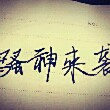 骚神来袭